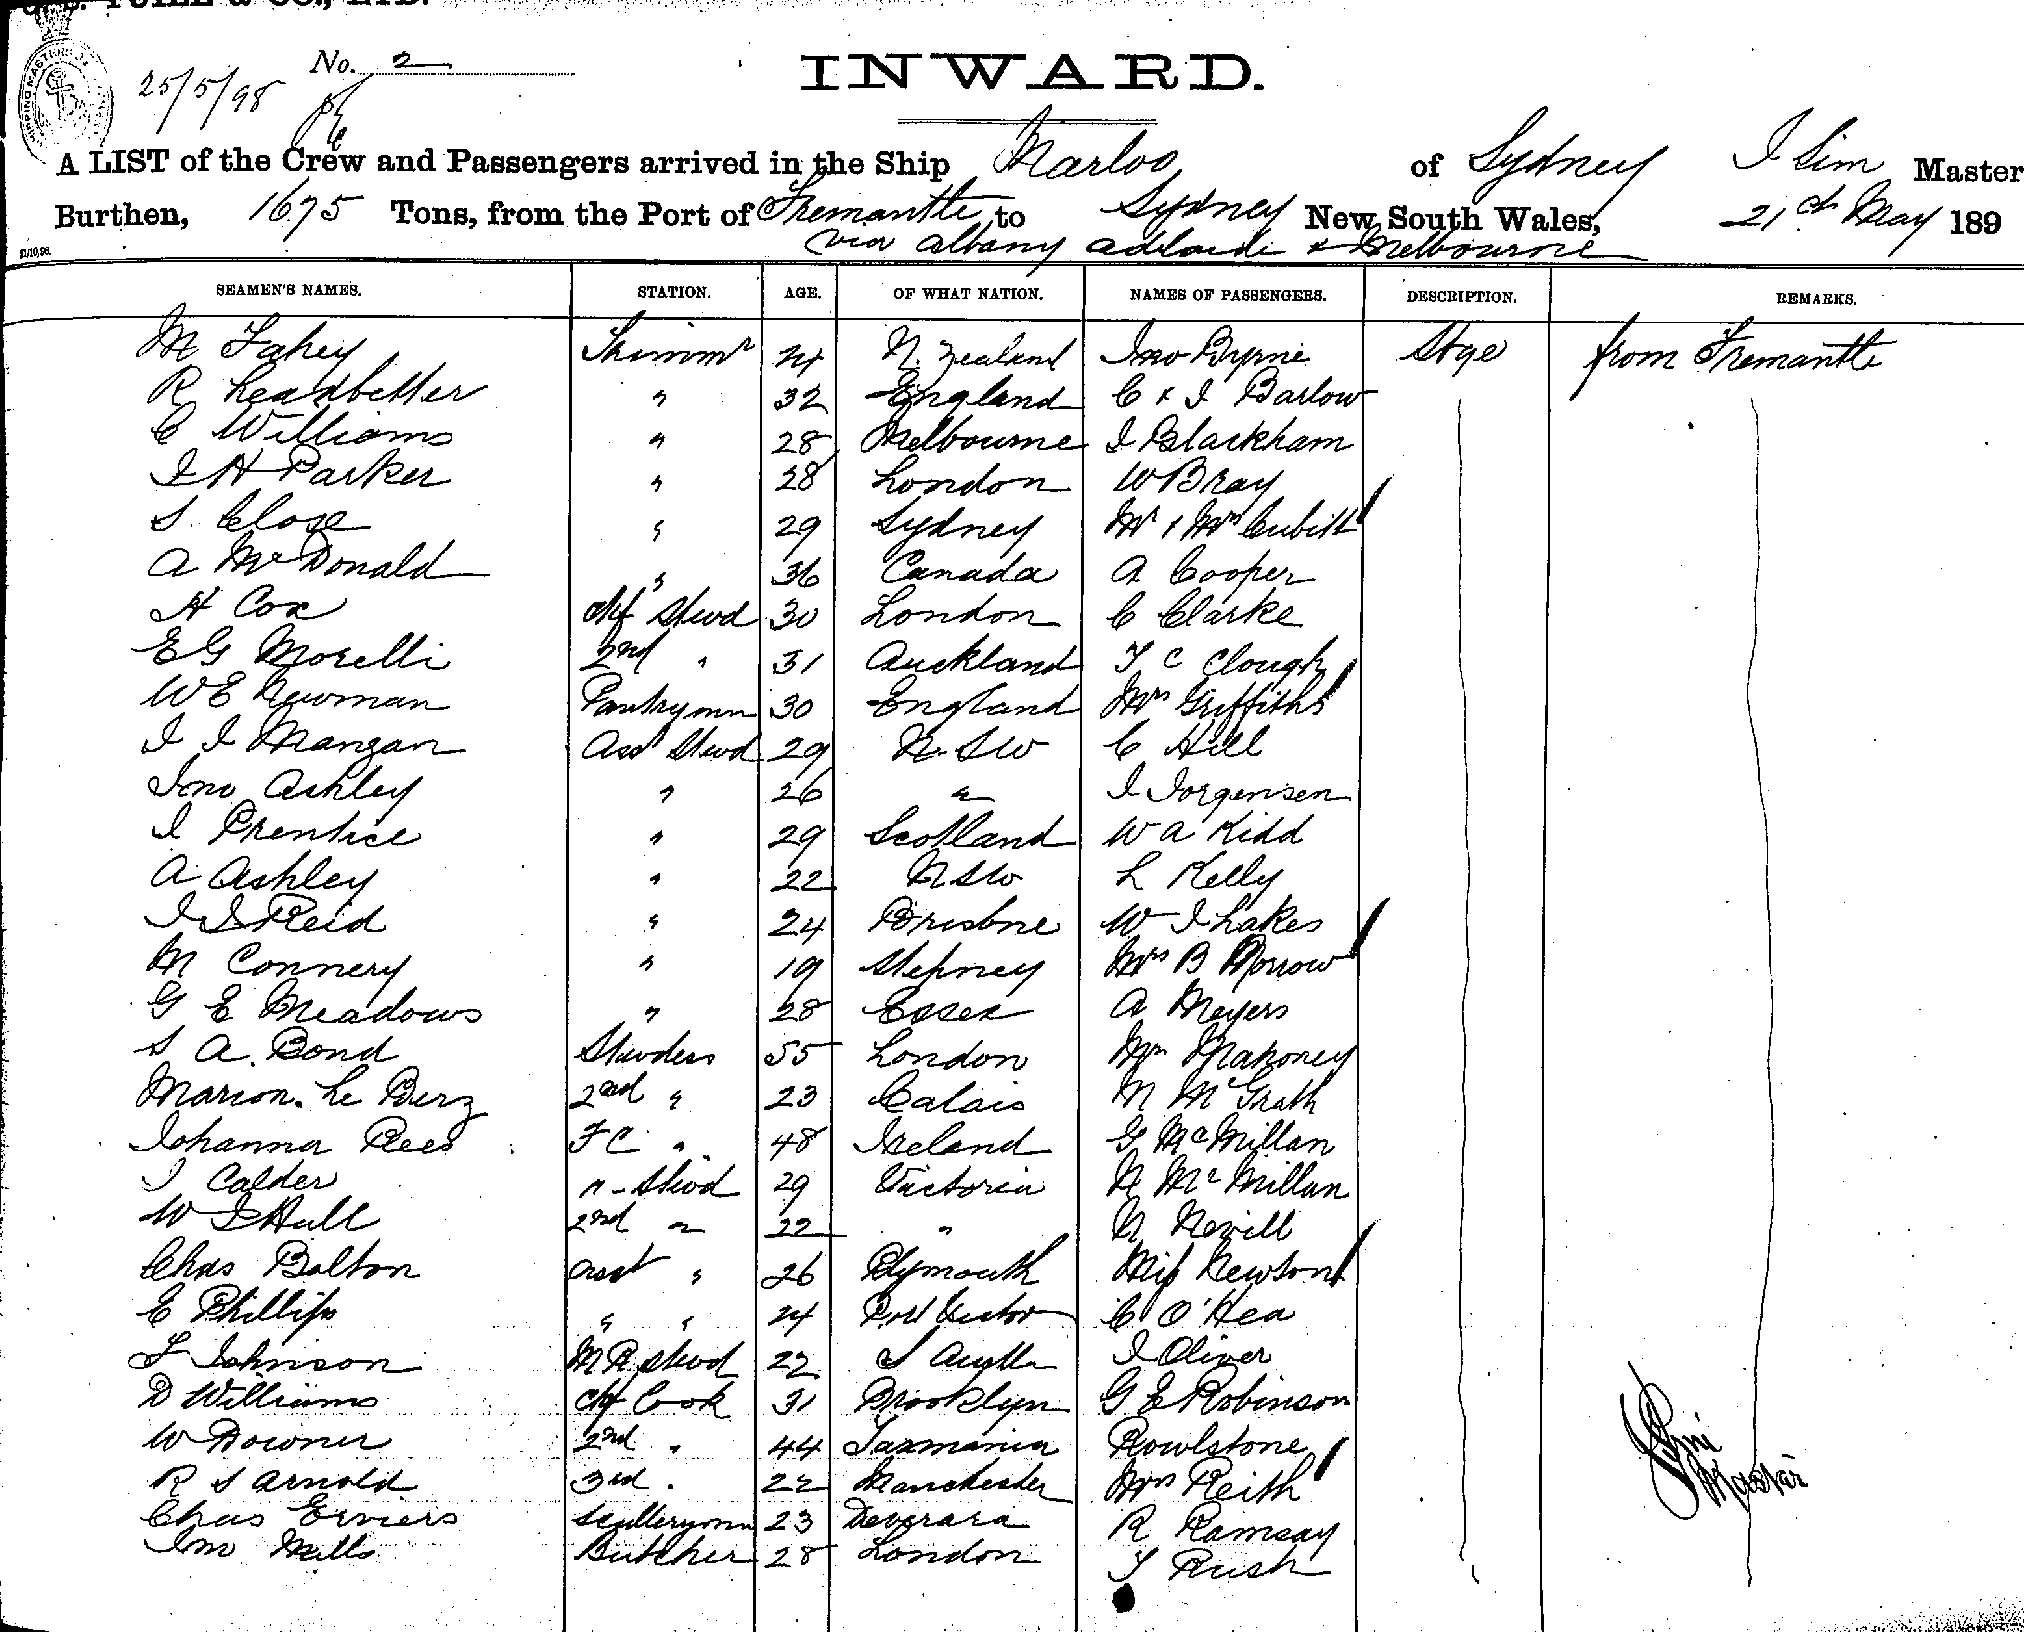 No. 2
25/5/98
INWARD.
A LIST of the Crew and Passengers arrived in the Ship Marloo of Sydney J Sim Master
Burthen, 1675 Tons, from the Port of Fremantle to Sydney New South Wales, 21st May 189
via Albany Adelaide & Melbourne
SEAMEN'S NAMES. STATION. AGE. OF WHAT NATION. NAMES OF PASSENGERS. DESCRIPTION. REMARKS.
M Fahey Trimmr 24 N. Zealand Jno Byrne Stge from Fremantle
R Leadbetter " 32 England C & J Barlow
C Williams " 28 Melbourne J Blackham
J H Parker " 28 London W Bray
S. Close " 29 Sydney Mr & Mrs Cubitt
A McDonald " 36 Canada A Cooper
H Cox Chf Stewd 30 London C Clarke
E G Morelli 2nd " 31 Auckland T C Clough
W E Newman Pantrymn 30 England Mrs Griffiths
J J Mangan Asst Stewd 29 N.SW C Hill
Jno Ashley " 26 " J Jorgensen
J Prentice " 29 Scotland W A Kidd
A Ashley " 22 NSW L Kelly
J J Reid " 24 Brisbne W J Lakes
M Connery " 19 Stepney Mrs B Morrow
G E Meadows " 28 Essex A Meyers
S A. Bond Stewdess 55 London Mrs Mahoney
Marion Le Berz 2nd " 23 Calais N McGrath
Johanna Rees F C " 48 Ireland G McMillan
J Calder n-Stewd 29 Victoria N McMillan
W J Hull 2nd " 22 " N Nevill
Chas Bolton Asst " 26 Plymouth Miss Newton
E Phillips " " 24 Port Victor C O'Hea
F Johnson M R Stewd 22 S Austla J Oliver
D Williams Chf Cook 31 Brooklyn G E Robinson
W Downer 2nd " 44 Tasmania Rowlstone
R S Arnold 3rd " 22 Manchester Mrs Reith
Chas Erviers Scullerymn 23 Demerara R Ramsay
Jno Mills Butcher 28 London T Rush
J Sim
Master